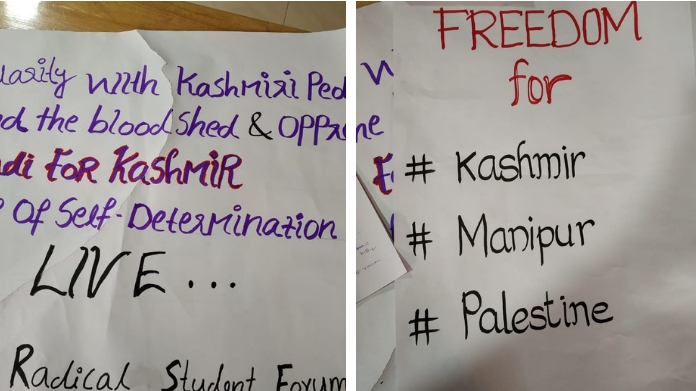 larity With Kashmiri Peo
nd the blood shed & OPPR
di FOR KASHMIR
Of Self-Determination
LIVE...
Radical Student Forum
FREEDOM
for
# Kashmir
# Manipur
# Palestine